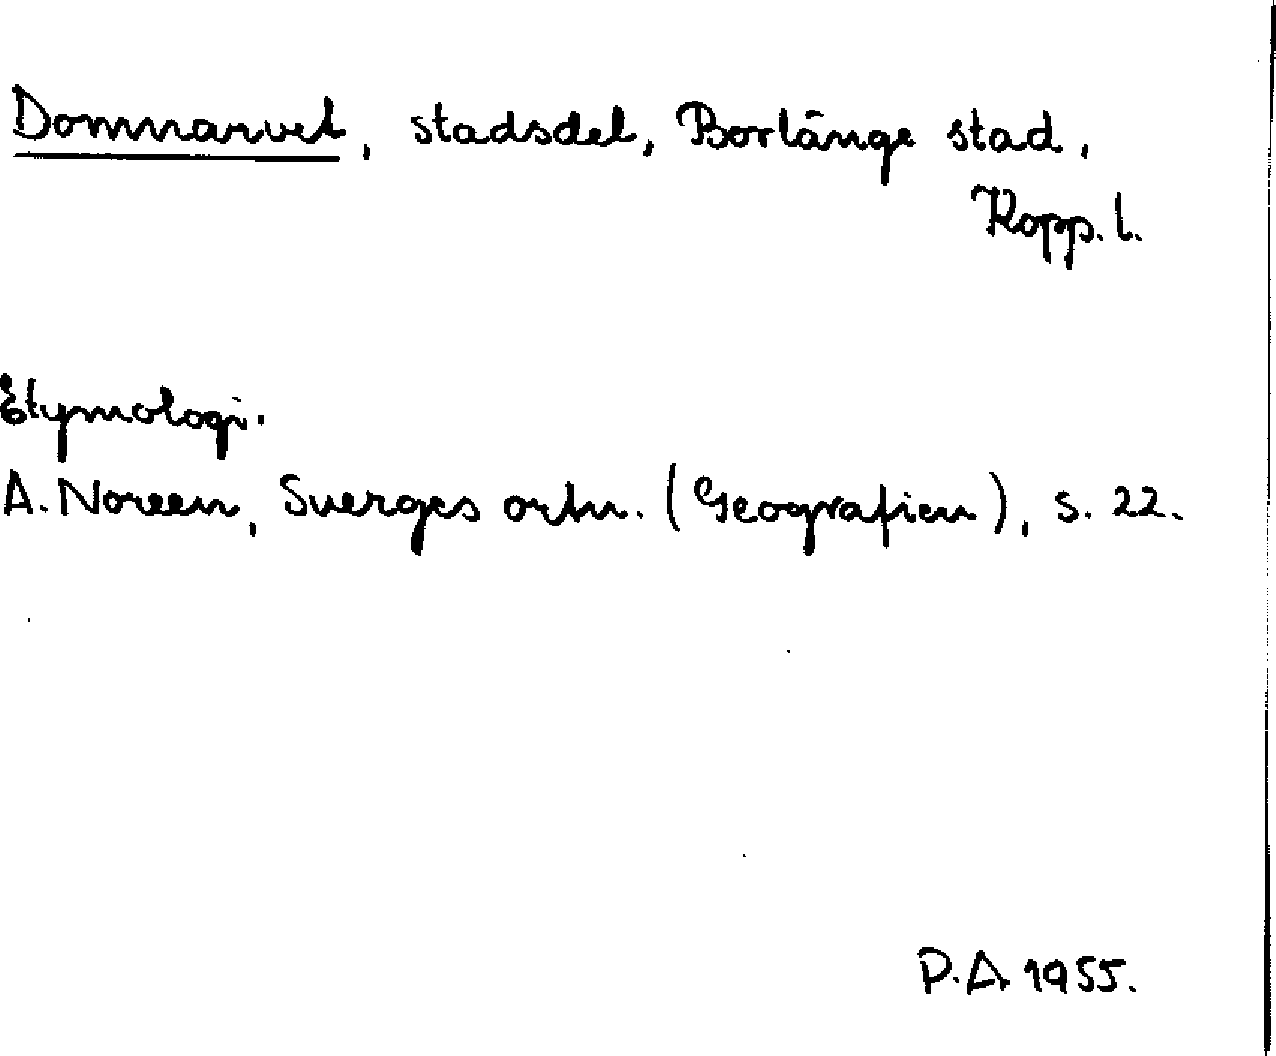 Domnarvet, stadsdel, Borlänge stad,
Kopp. l.
Etymologi.
A. Noreen, Sverges ortn. (Geografien), s. 22.
P.A. 1955.